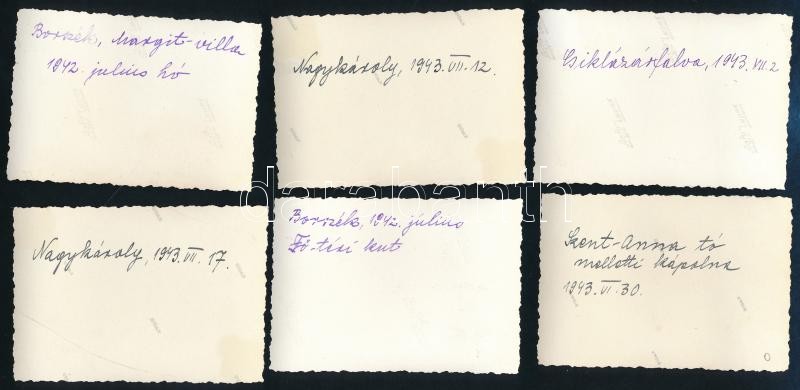 Borszék, Margit-villa
1942. julius hó
Nagykároly, 1943. VII. 12.
Csiklázárfalva, 1943. VII. 2
Nagykároly, 1943. VII. 17.
Borszék, 1942. július
Fő-téri kut
Szent-Anna tó
melletti kápolna
1943. VI. 30.
0
darabanth